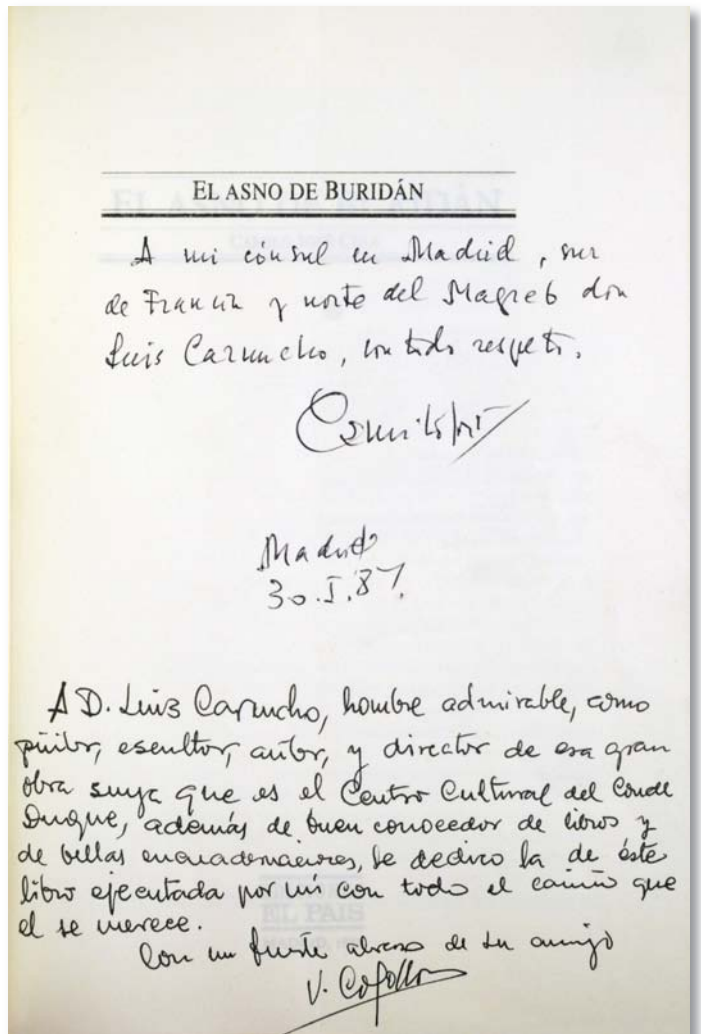 EL ASNO DE BURIDÁN
A mi cónsul en Madrid, sur
de Francia y norte del Magreb don
Luis Caruncho, con todo respeto.
Madrid
30.I.87.
A D. Luis Caruncho, hombre admirable, como
pintor, escultor, autor, y director de esa gran
obra suya que es el Centro Cultural del Conde
Duque, además de buen conocedor de libros y
de bellas encuadernaciones, le dedico la de éste
libro ejecutada por mí con todo el cariño que
el se merece.
EL PAIS
Con un fuerte abrazo de su amigo
V. Cogollor